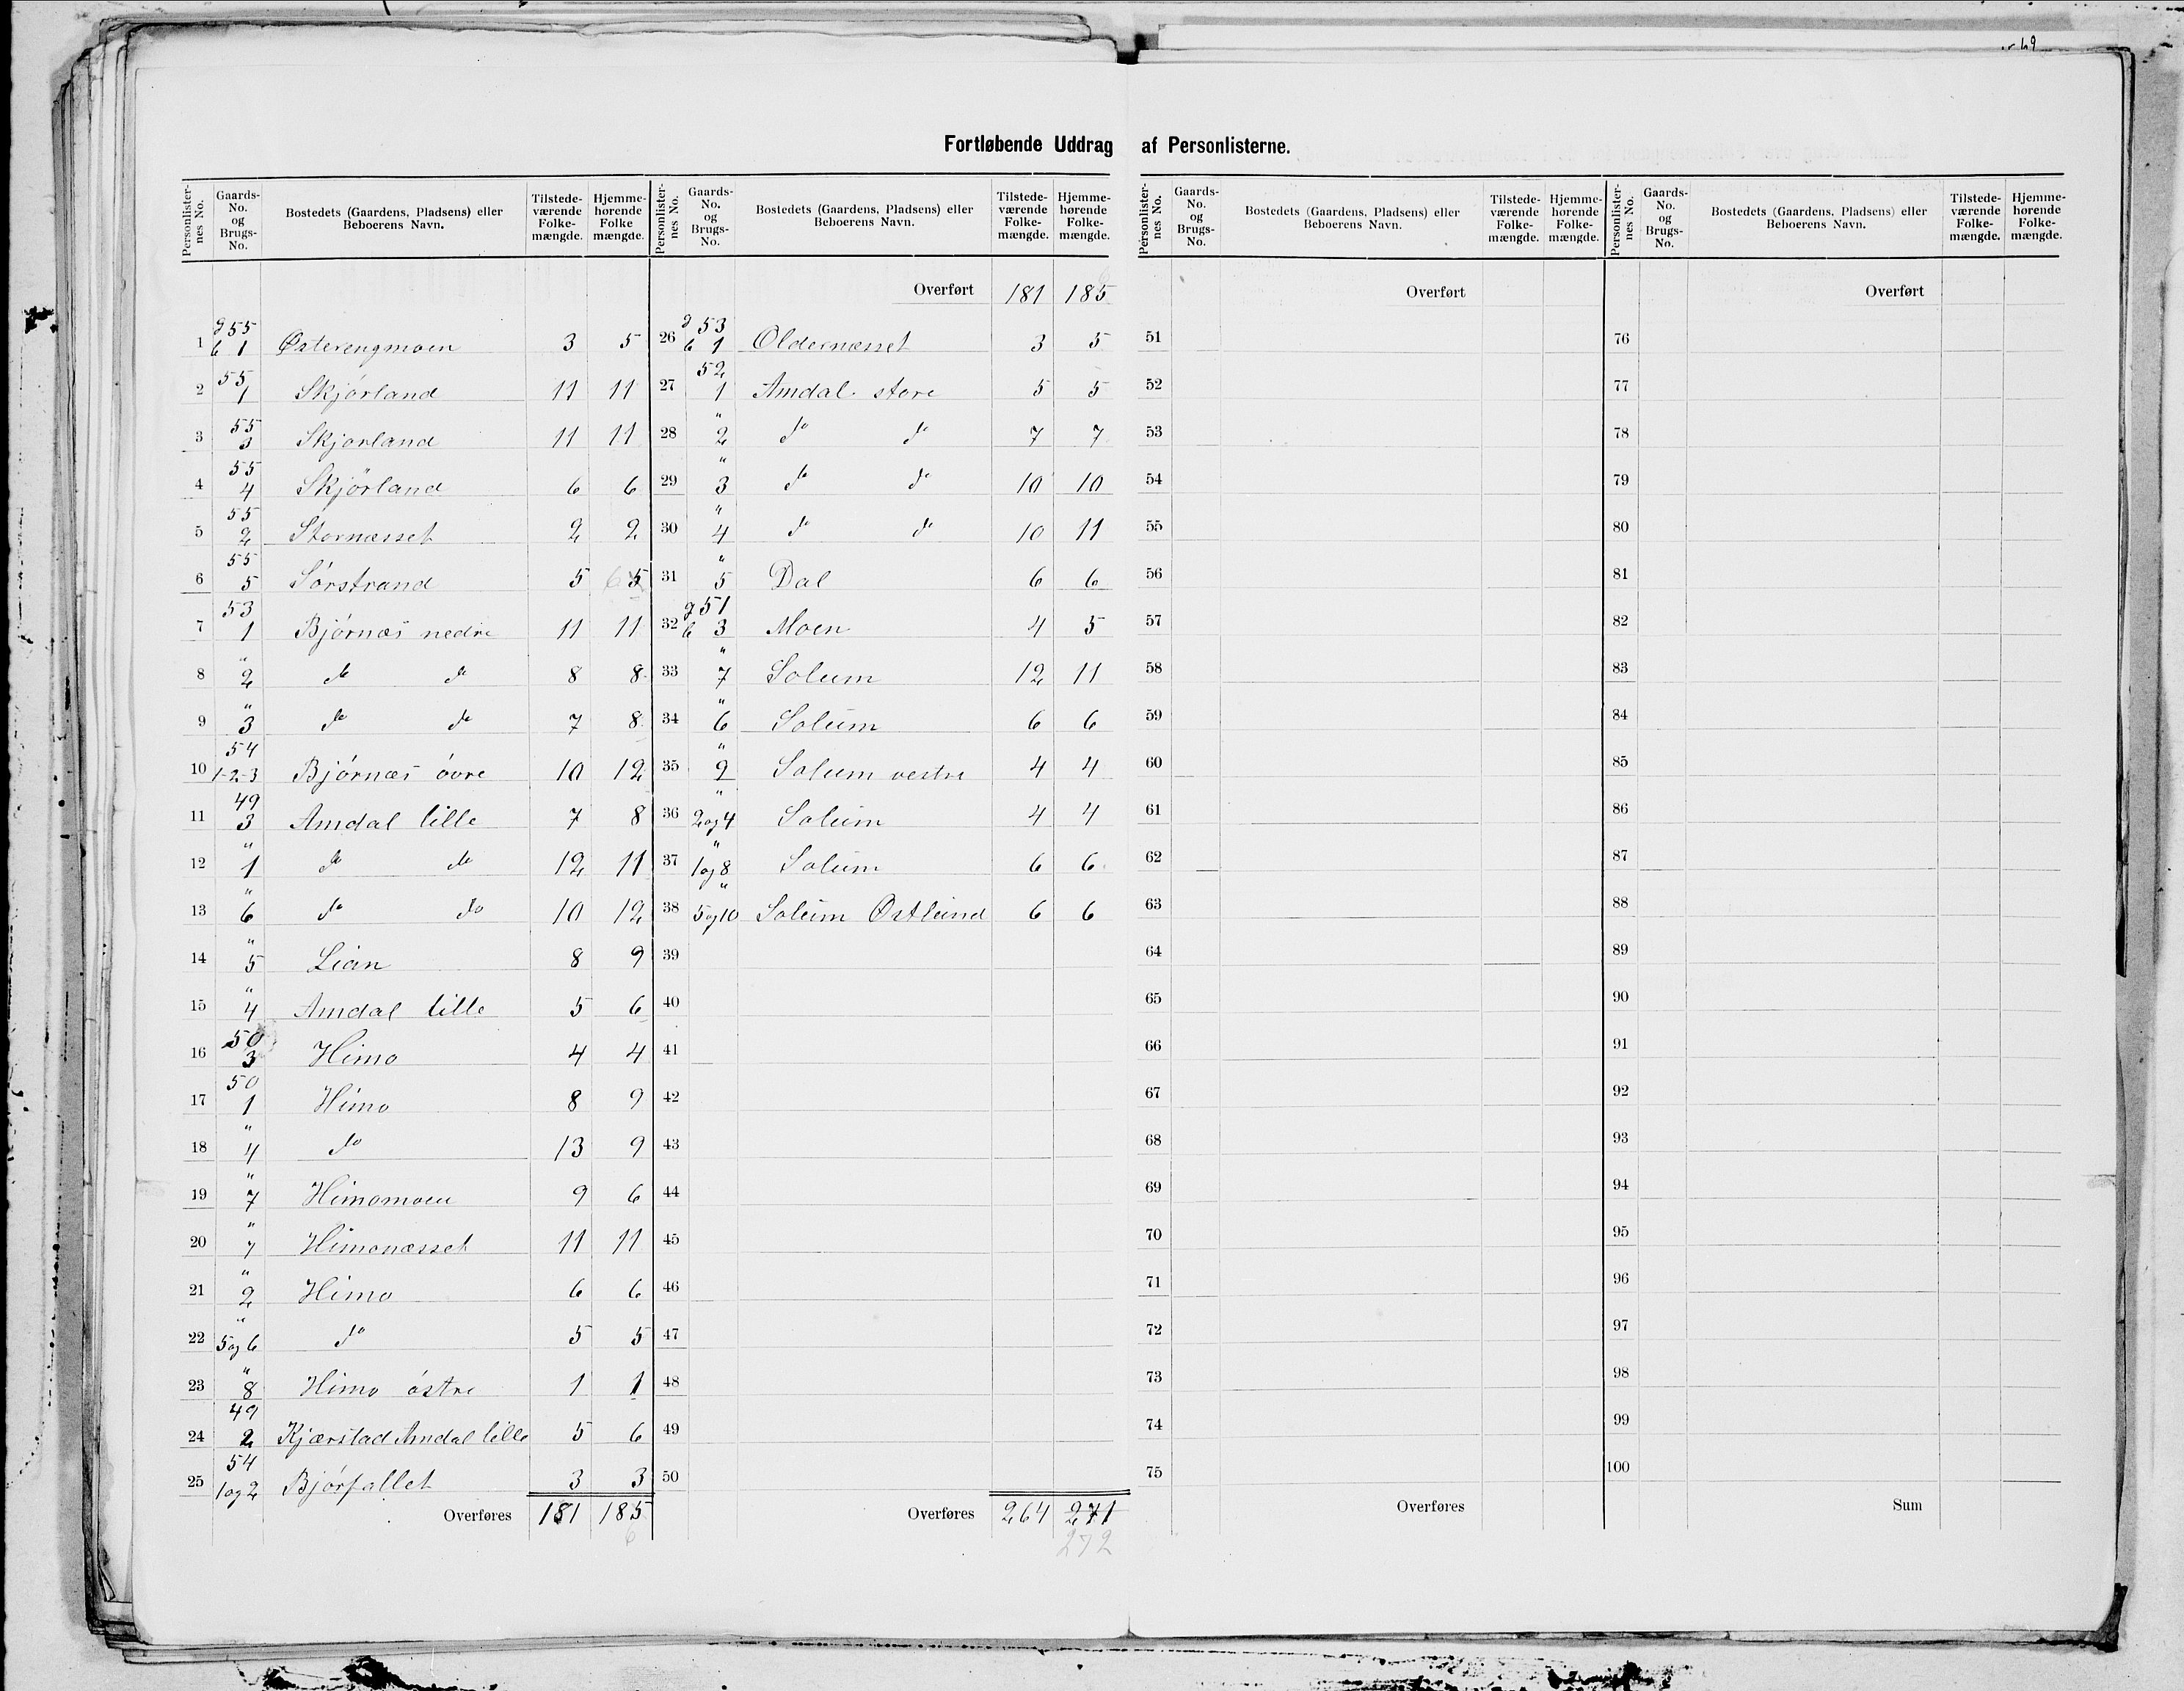 Fortløbende Uddrag af Personlisterne.
Personlister-nes No. | Gaards-No. og Brugs-No. | Bostedets (Gaardens, Pladsens) eller Beboerens Navn. | Tilstede-værende Folke-mængde. | Hjemme-hørende Folke mængde.
1 | g 55 b 1 | Østerengmoen | 3 | 5
2 | 55 1 | Skjørland | 11 | 11
3 | 55 3 | Skjørland | 11 | 11
4 | 55 4 | Skjørland | 6 | 6
5 | 55 2 | Stornæsset | 2 | 2
6 | 55 5 | Sørstrand | 5 | 6 5
7 | 53 1 | Bjørnæs nedre | 11 | 11
8 | " 2 | do do | 8 | 8
9 | " 3 | do do | 7 | 8
10 | 54 1-2-3 | Bjørnæs øvre | 10 | 12
11 | 49 3 | Amdal lille | 7 | 8
12 | " 1 | do do | 12 | 11
13 | " 6 | do do | 10 | 12
14 | " 5 | Lian | 8 | 9
15 | " 4 | Amdal lille | 5 | 6
16 | 50 3 | Himo | 4 | 4
17 | 50 1 | Himo | 8 | 9
18 | " 4 | do | 13 | 9
19 | " 7 | Himomoen | 9 | 6
20 | " 7 | Himonæsset | 11 | 11
21 | " 2 | Himo | 6 | 6
22 | " 5 og 6 | do | 5 | 5
23 | " 8 | Himo østre | 1 | 1
24 | 49 2 | Kjærstad Amdal lille | 5 | 6
25 | 54 1 og 2 | Bjørfallet | 3 | 3
Overføres | 181 | 185
6
Personlister-nes No. | Gaards-No. og Brugs-No. | Bostedets (Gaardens, Pladsens) eller Beboerens Navn. | Tilstede-værende Folke-mængde. | Hjemme-hørende Folke-mængde.
Overført | 181 | 185 6
26 | g 53 b 1 | Oldernæsset | 3 | 5
27 | 52 1 | Amdal store | 5 | 5
28 | " 2 | do do | 7 | 7
29 | " 3 | do do | 10 | 10
30 | " 4 | do do | 10 | 11
31 | " 5 | Dal | 6 | 6
32 | g 51 b 3 | Moen | 4 | 5
33 | " 7 | Solum | 12 | 11
34 | " 6 | Solum | 6 | 6
35 | " 9 | Solum vestre | 4 | 4
36 | " 2 og 4 | Solum | 4 | 4
37 | " 1 og 8 | Solum | 6 | 6
38 | " 5 og 10 | Solum Østlund | 6 | 6
39
40
41
42
43
44
45
46
47
48
49
50
Overføres | 264 | 271
272
Personlister-nes No. | Gaards-No. og Brugs-No. | Bostedets (Gaardens, Pladsens) eller Beboerens Navn. | Tilstede-værende Folke-mængde. | Hjemme-hørende Folke-mængde.
Overført
51
52
53
54
55
56
57
58
59
60
61
62
63
64
65
66
67
68
69
70
71
72
73
74
75
Overføres
Personlister-nes No. | Gaards-No. og Brugs-No. | Bostedets (Gaardens, Pladsens) eller Beboerens Navn. | Tilstede-værende Folke-mængde. | Hjemme-hørende Folke-mængde.
Overført
76
77
78
79
80
81
82
83
84
85
86
87
88
89
90
91
92
93
94
95
96
97
98
99
100
Sum